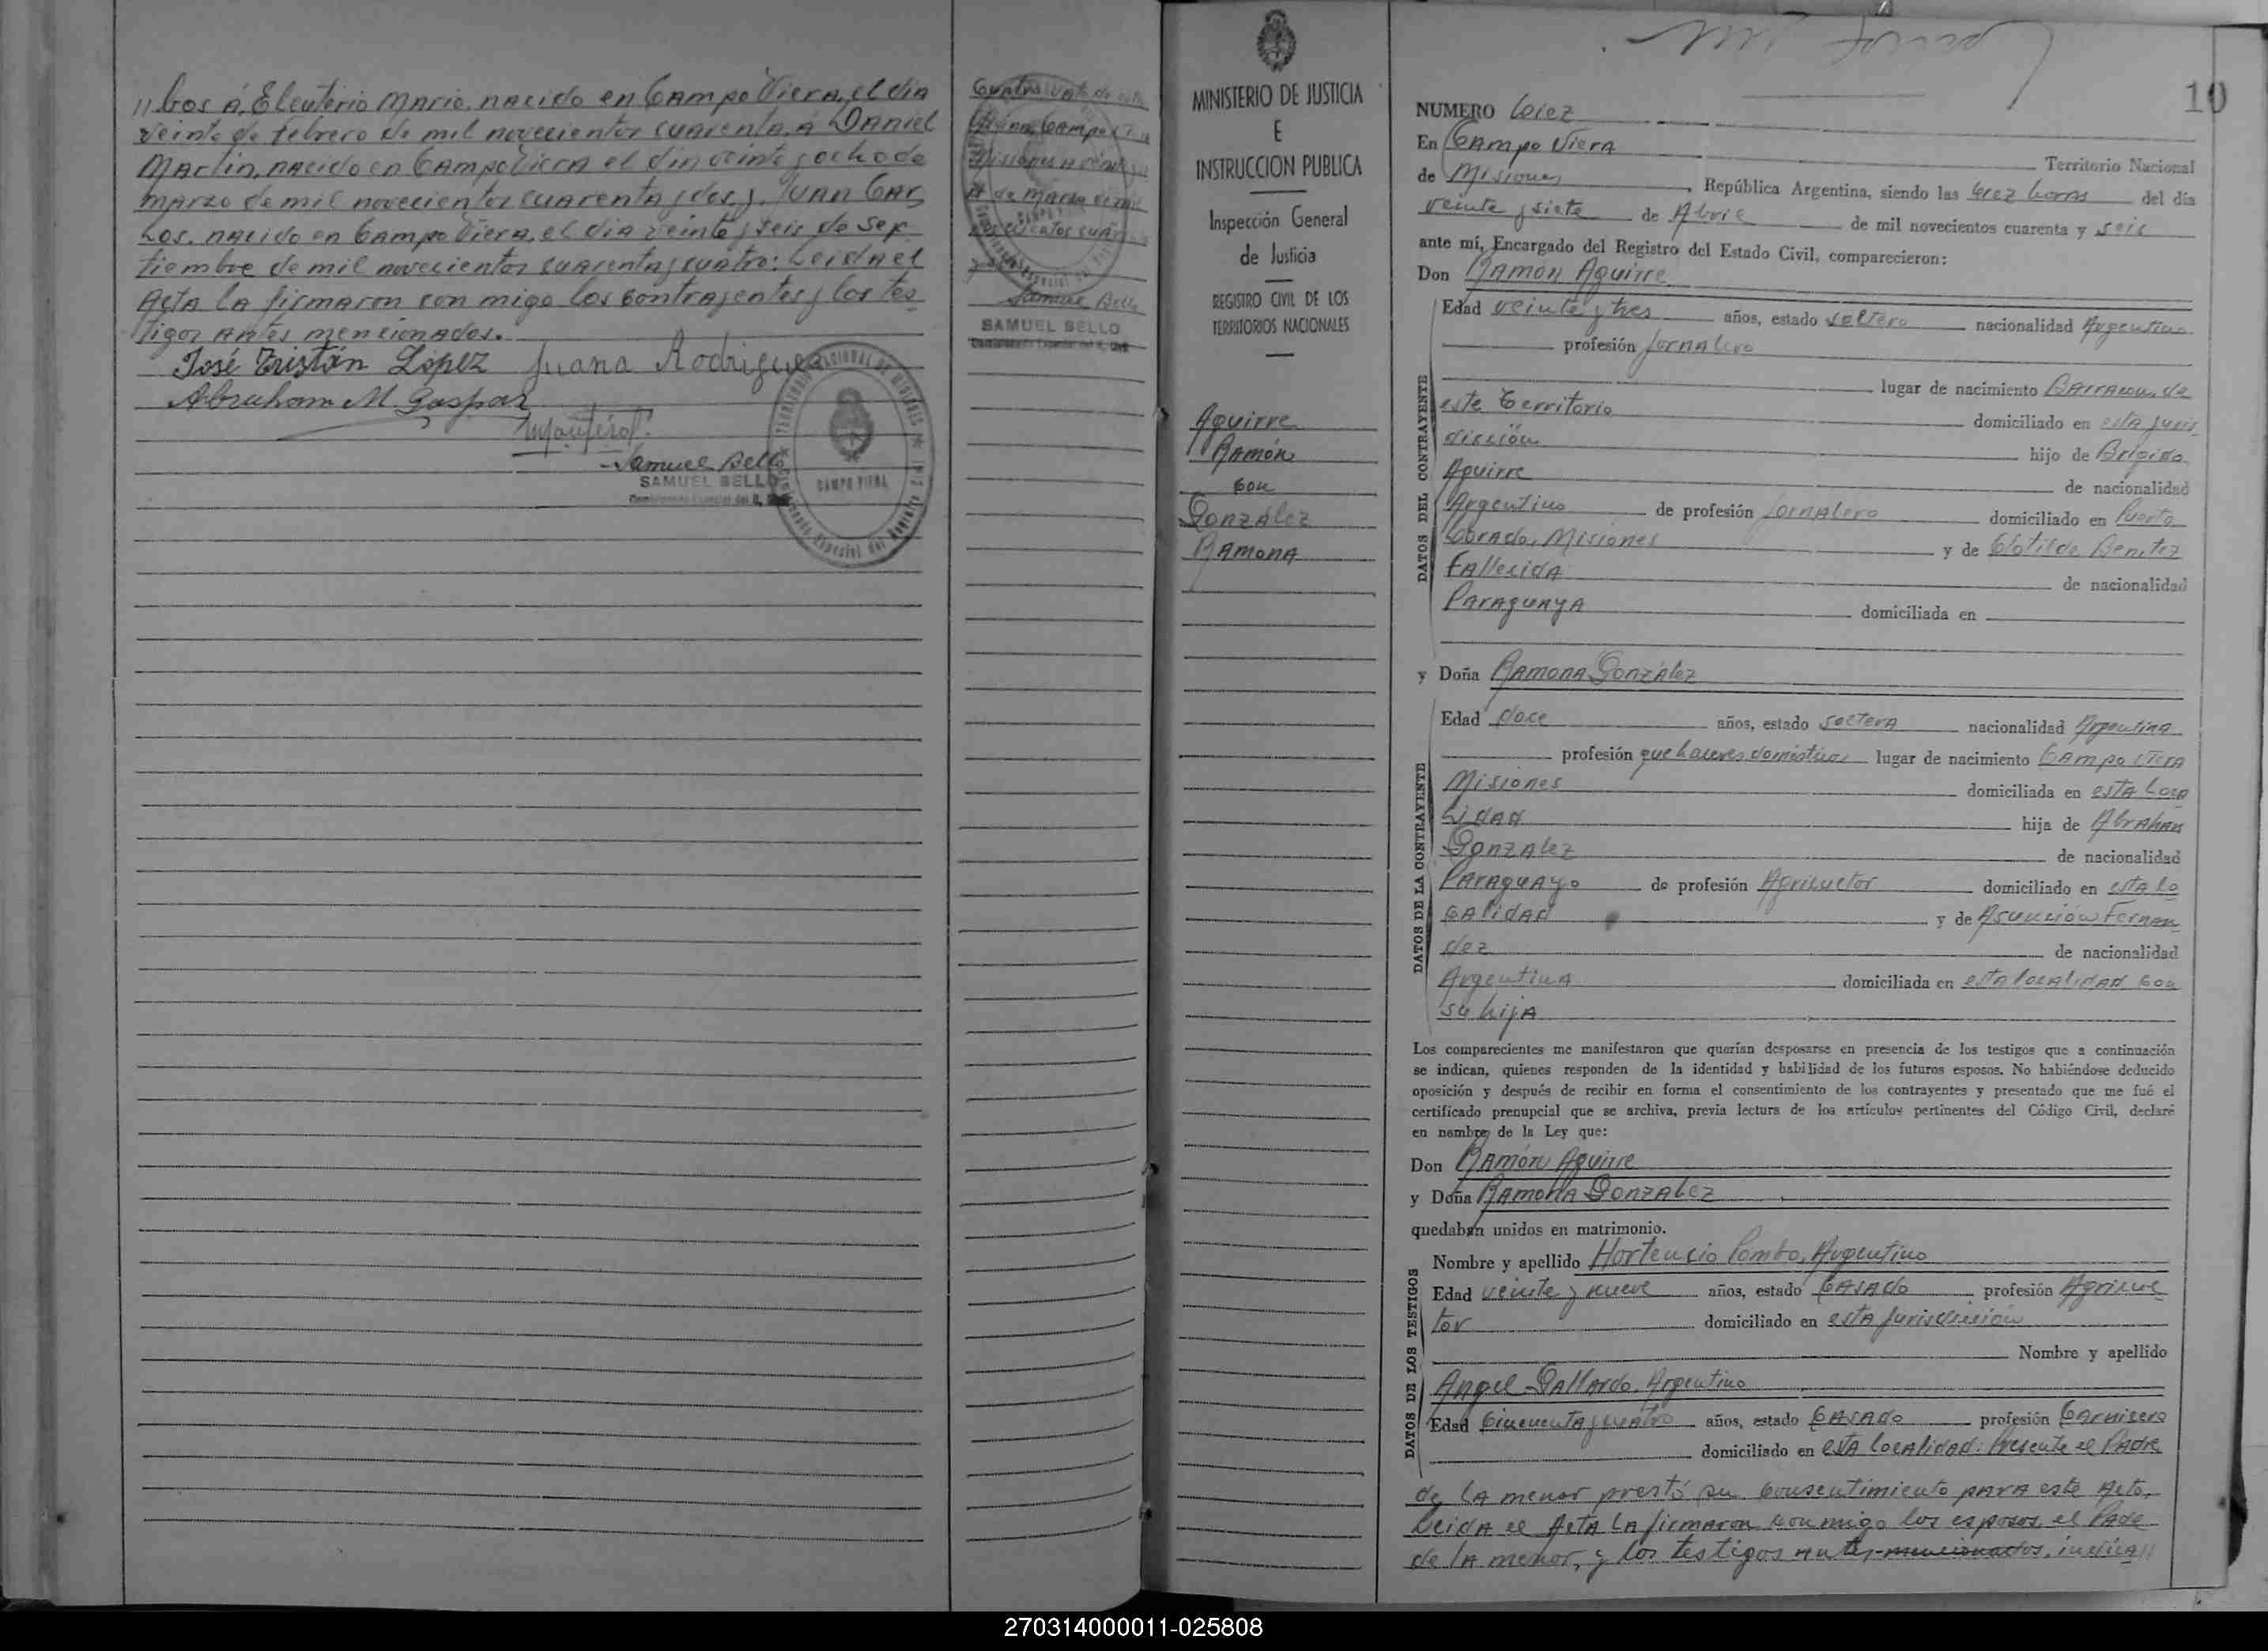 "bos á, Eleuterio Mario, nacido en Campo Viera, el dia
veinte de febrero de mil novecientos cuarenta, á Daniel
Martin, nacido en Campo Viera el dia veinte y ocho de
marzo de mil novecientos cuarenta y dos, y Juan Car
los, nacido en Campo Viera, el dia veinte y seis de Sep
tiembre de mil novecientos cuarenta y cuatro: Leida el
Acta la firmaron con migo los contrayentes y los tes
tigos antes mencionados.
José Tristán López Juana Rodriguez
Abraham M. Gaspar
Samuel Bello
SAMUEL BELLO
CAMPO VIERA
Campo
Misiones
de Marzo de mil
Samuel Bello
SAMUEL BELLO
MINISTERIO DE JUSTICIA
E
INSTRUCCION PUBLICA
Inspección General
de Justicia
REGISTRO CIVIL DE LOS
TERRITORIOS NACIONALES
Aguirre
Ramón
con
González
Ramona
10
NUMERO Diez
En Campo Viera Territorio Nacional
de Misiones, República Argentina, siendo las diez horas del día
veinte y siete de Abril de mil novecientos cuarenta y seis
ante mí, Encargado del Registro del Estado Civil, comparecieron:
Don Ramon Aguirre
DATOS DEL CONTRAYENTE
Edad veinte y tres años, estado soltero nacionalidad Argentino
profesión Jornalero
lugar de nacimiento Barracon, de
este Territorio domiciliado en esta juris
dicción hijo de Brigido
Aguirre de nacionalidad
Argentino de profesión Jornalero domiciliado en Puerto
Dorado, Misiones y de Clotilde Benitez
Fallecida de nacionalidad
Paraguaya domiciliada en
y Doña Ramona González
DATOS DE LA CONTRAYENTE
Edad doce años, estado soltera nacionalidad Argentina
profesión quehaceres domésticos lugar de nacimiento Campo Viera
Misiones domiciliada en esta loca
lidad hija de Abrahan
Gonzalez de nacionalidad
Paraguayo de profesión Agricultor domiciliado en esta lo
calidad y de Asunción Fernan
dez de nacionalidad
Argentina domiciliada en esta localidad con
su hija
Los comparecientes me manifestaron que querían desposarse en presencia de los testigos que a continuación
se indican, quienes responden de la identidad y habilidad de los futuros esposos. No habiéndose deducido
oposición y después de recibir en forma el consentimiento de los contrayentes y presentado que me fué el
certificado prenupcial que se archiva, previa lectura de los artículos pertinentes del Código Civil, declaré
en nombre de la Ley que:
Don Ramón Aguirre
y Doña Ramona Gonzalez
quedaban unidos en matrimonio.
DATOS DE LOS TESTIGOS
Nombre y apellido Hortencio Pombo, Argentino
Edad veinte y nueve años, estado Casado profesión Agricul
tor domiciliado en esta Jurisdicción
Nombre y apellido
Angel Gallardo, Argentino
Edad Cincuenta y cuatro años, estado Casado profesión Carnicero
domiciliado en esta localidad: Presente el Padre
de la menor prestó su consentimiento para este Acto,
Leida el Acta la firmaron con migo los esposos, el Padre
de la menor, y los testigos antes mencionados, indica"
270314000011-025808